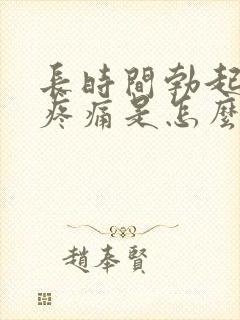 長時間勃起
疼痛是怎麼
趙奉賢